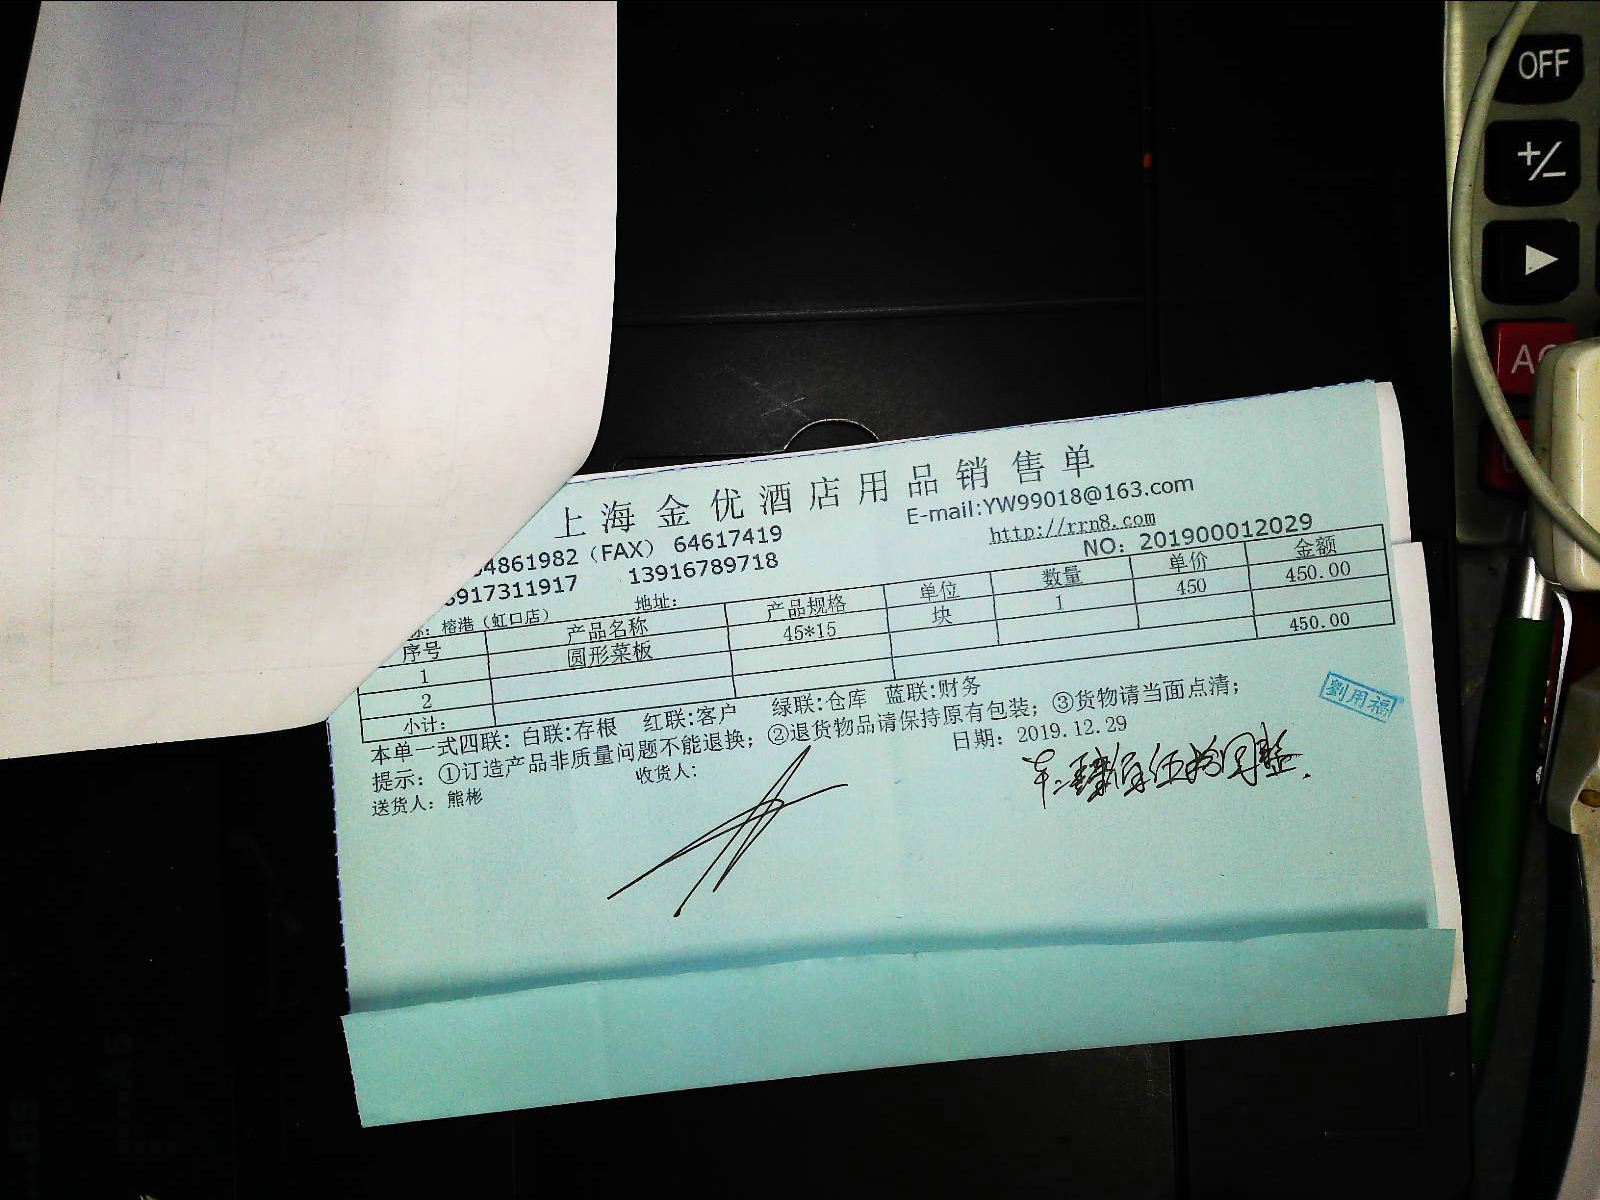 上海金优酒店用品销售单
E-mail:YW99018@163.com
4861982（FAX） 64617419
http://rrn8.com
917311917 13916789718
NO：201900012029
称：榕港（虹口店） 地址：
序号 产品名称 产品规格 单位 数量 单价 金额
1 圆形菜板 45*15 块 1 450 450.00
2
小计： 450.00
本单一式四联：白联:存根 红联:客户 绿联:仓库 蓝联:财务
提示：①订造产品非质量问题不能退换；②退货物品请保持原有包装；③货物请当面点清；
送货人：熊彬 收货人： 日期：2019.12.29
劉用福
肆佰伍拾圆整
OFF
+/-